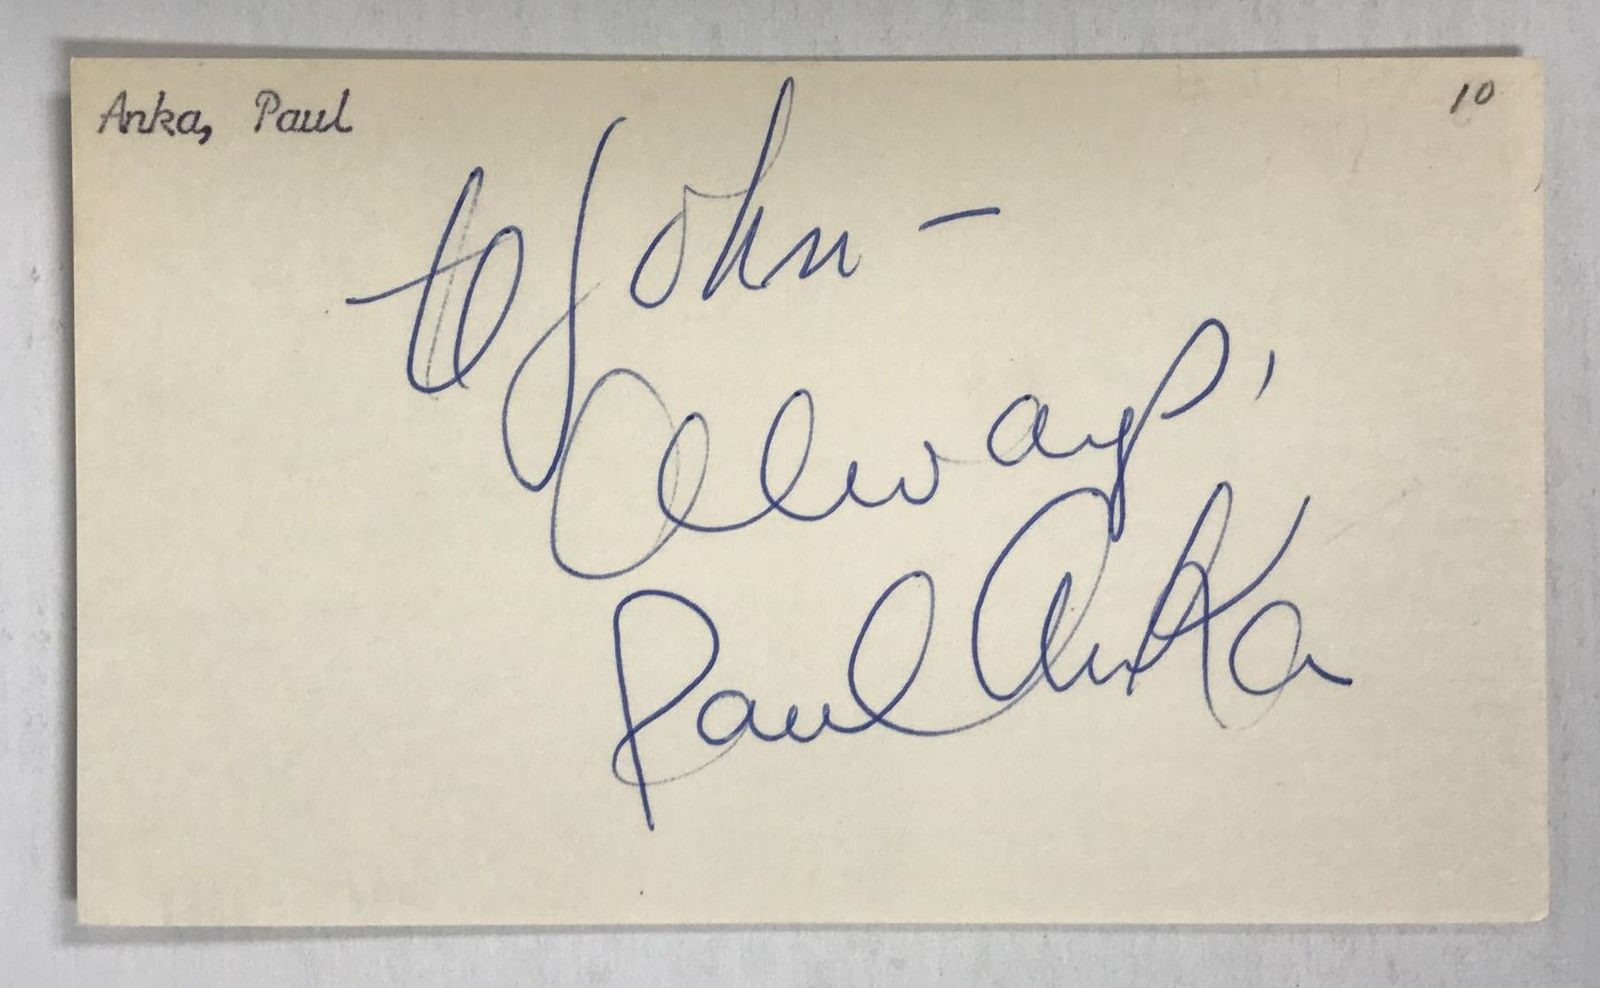 Anka, Paul
10
to John –
Always,
Paul Anka